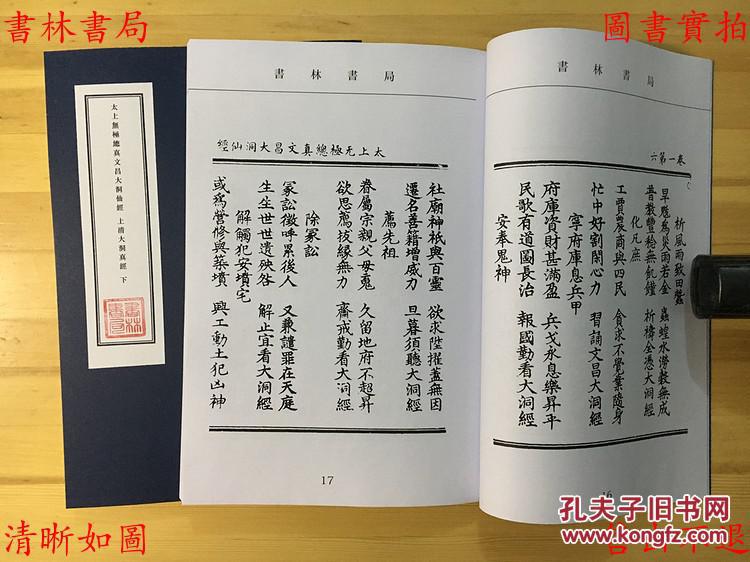 書林書局
圖書實拍
太上無極總真文昌大洞仙經 上清大洞真經 下
書林書局
書林書局
卷一第六
祈風雨致田蠶
旱魃為災雨若金 蟲蝗水澇數無成
普教豐稔無飢饉 祈禱全憑大洞經
化凡庶
工賈農商與四民 貪求不覺業隨身
忙中好割閑心力 習誦文昌大洞經
寧府庫息兵甲
府庫資財甚滿盈 兵戈永息樂昇平
民歌有道圖長治 報國勤看大洞經
安奉鬼神
16
太上无極總真文昌大洞仙經
社廟神祇與百靈 欲求陞擢蓋無因
遷名善籍增威力 旦暮須聽大洞經
薦先祖
眷屬宗親父母䰟 久留地府不超昇
欲思薦拔緣無力 齋戒勤看大洞經
除冢訟
冢訟徵呼累後人 又兼譴罪在天庭
生生世世遺殃咎 解止宜看大洞經
解觸犯安墳宅
或為營修與築墳 興工動土犯凶神
17
清晰如圖
孔夫子旧书网
www.kongfz.com